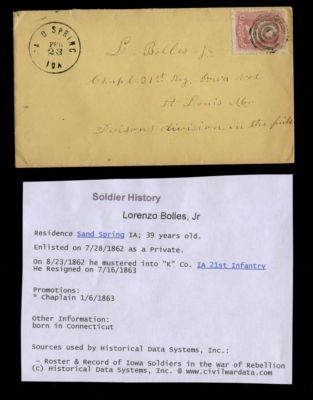 SAND SPRING
FEB
23
IOA
L. Bolles Jr
Chapl 21st Reg. Iowa Vol
St Louis Mo
division in the field
Soldier History
Lorenzo Bolles, Jr
Residence Sand Spring IA; 39 years old.
Enlisted on 7/28/1862 as a Private.
On 8/23/1862 he mustered into "K" Co. IA 21st Infantry
He Resigned on 7/16/1863
Promotions:
* Chaplain 1/6/1863
Other Information:
born in Connecticut
Sources used by Historical Data Systems, Inc.:
- Roster & Record of Iowa Soldiers in the War of Rebellion
(c) Historical Data Systems, Inc. @ www.civilwardata.com